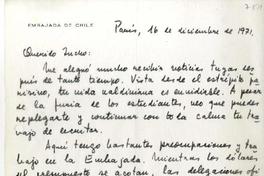 EMBAJADA DE CHILE
París, 16 de diciembre de 1971.
Querido Lucho:
Me alegró mucho recibir noticias tuyas des
pués de tanto tiempo. Vista desde el estrépito pa
risino, tu vida valdiviana es envidiable. A pesar
de la furia de los estudiantes, veo que puedes
replegarte y continuar con toda calma tu tra
bajo de escritor.
Aquí tengo bastantes preocupaciones y tra
bajo en la Embajada. Mientras los dólares
del presupuesto se acotan, las delegaciones ofi